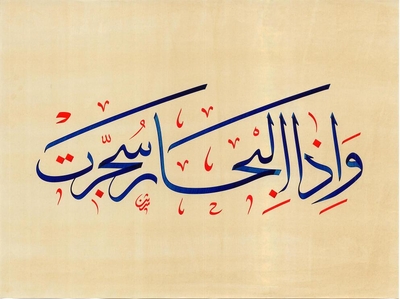 وَاِذَا الْبِحَارُ سُجِّرَتْ